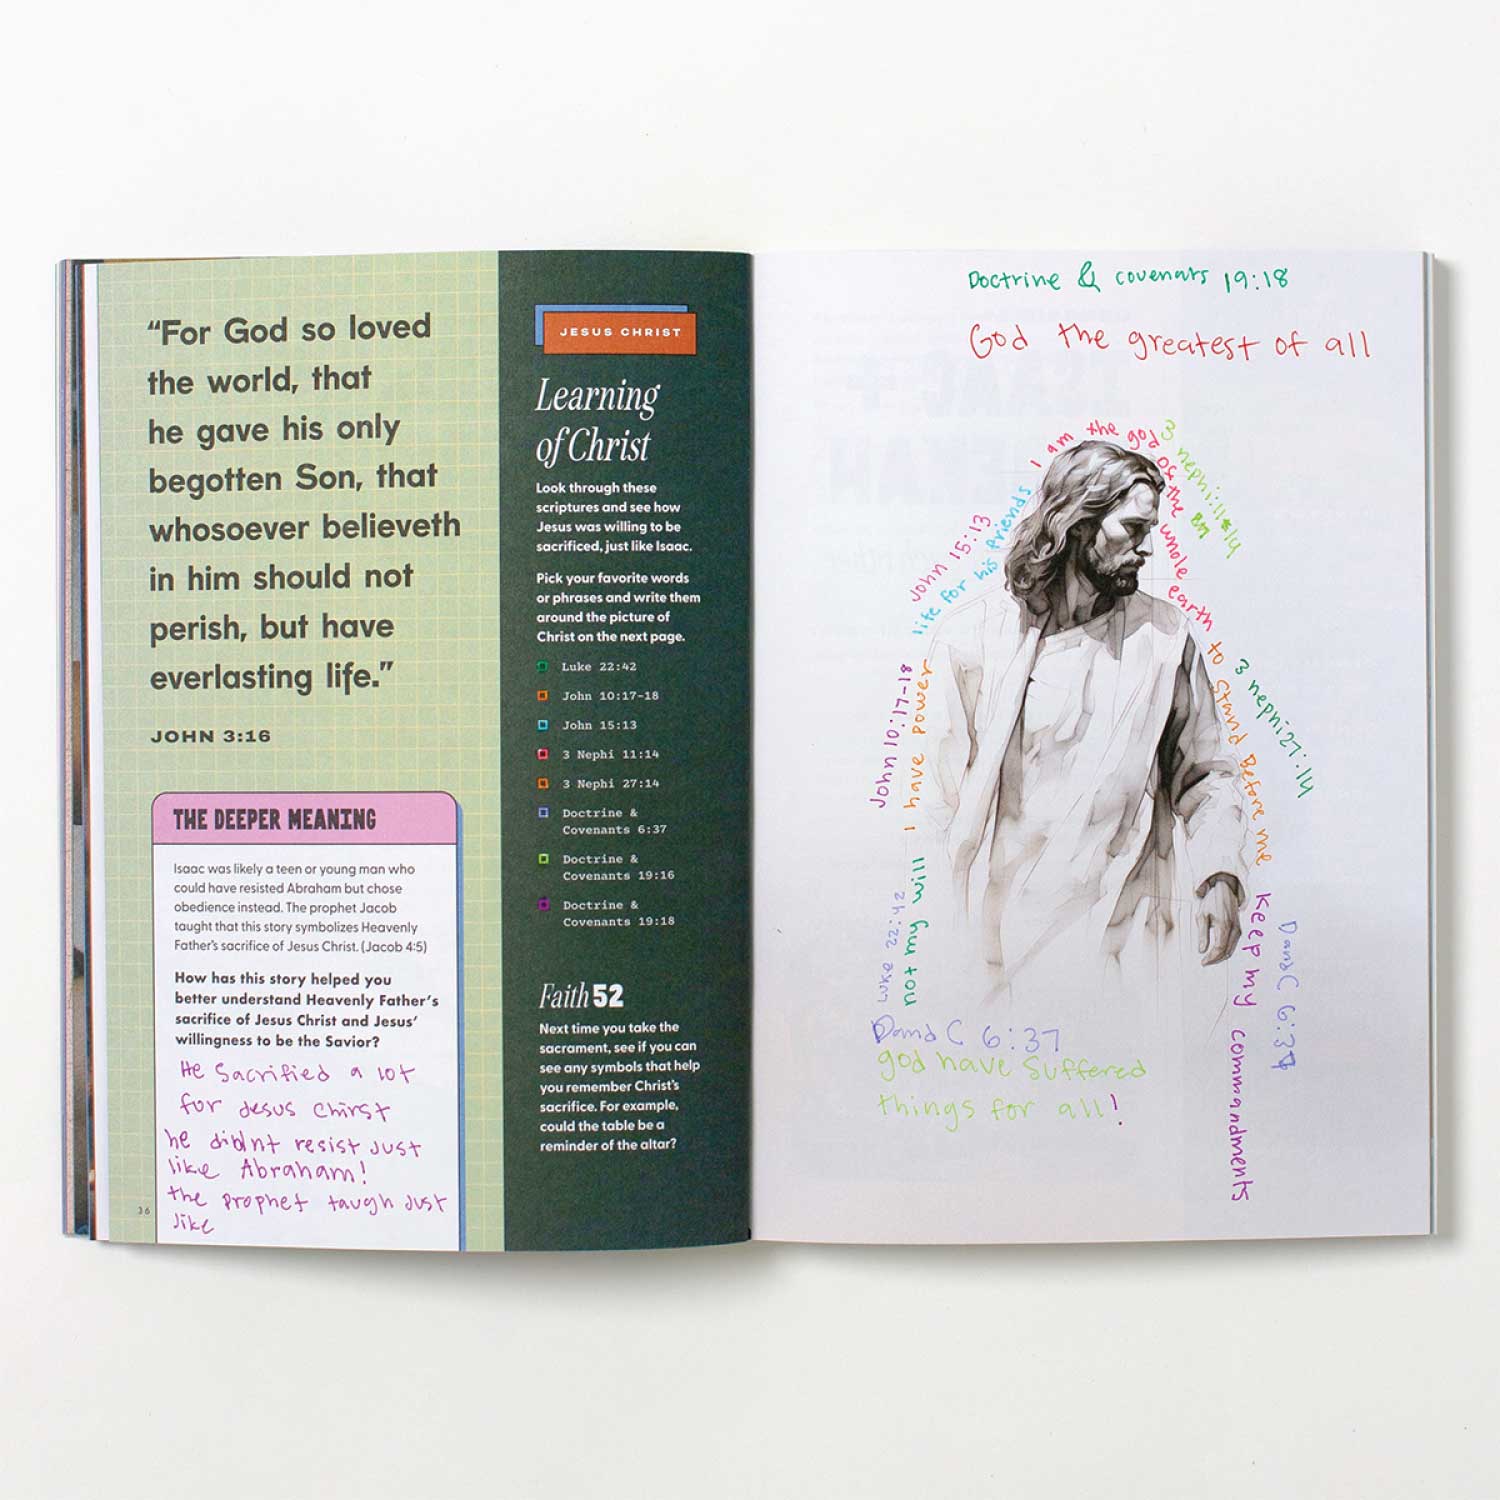 “For God so loved
the world, that
he gave his only
begotten Son, that
whosoever believeth
in him should not
perish, but have
everlasting life.”
JOHN 3:16
THE DEEPER MEANING
Isaac was likely a teen or young man who
could have resisted Abraham but chose
obedience instead. The prophet Jacob
taught that this story symbolizes Heavenly
Father’s sacrifice of Jesus Christ. (Jacob 4:5)
How has this story helped you
better understand Heavenly Father’s
sacrifice of Jesus Christ and Jesus’
willingness to be the Savior?
He Sacrified a lot
for Jesus Chirst
he didnt resist Just
like Abraham!
the prophet taugh Just
like
36
JESUS CHRIST
Learning
of Christ
Look through these
scriptures and see how
Jesus was willing to be
sacrificed, just like Isaac.
Pick your favorite words
or phrases and write them
around the picture of
Christ on the next page.
Luke 22:42
John 10:17-18
John 15:13
3 Nephi 11:14
3 Nephi 27:14
Doctrine &
Covenants 6:37
Doctrine &
Covenants 19:16
Doctrine &
Covenants 19:18
Faith 52
Next time you take the
sacrament, see if you can
see any symbols that help
you remember Christ’s
sacrifice. For example,
could the table be a
reminder of the altar?
Doctrine & covenats 19:18
God the greatest of all
Luke 22:42
not my will
John 10:17-18
I have power
John 15:13
life for his friends
I am the god of the whole earth
3 nephi:11
to Stand Before me
3 nephi 27:14
Keep my commandments
D and C 6:37
god have suffered
things for all!